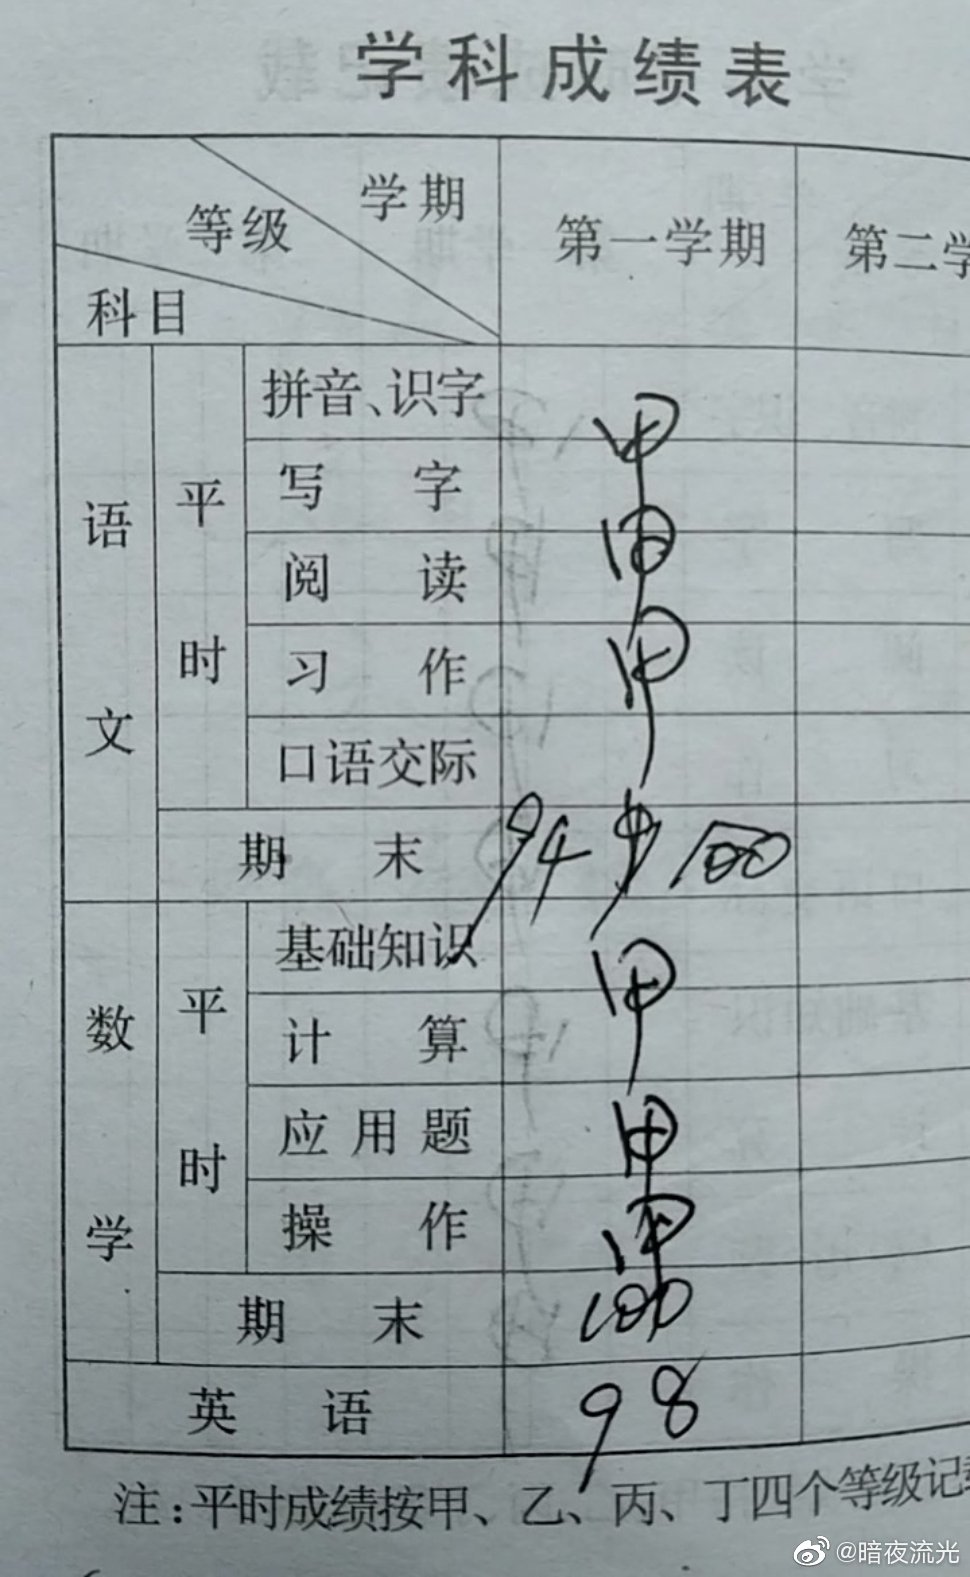 学科成绩表
学期
等级
科目
第一学期
第二学
语文
平时
拼音、识字
甲
写字
甲
阅读
甲
习作
口语交际
期末
94
100
数学
平时
基础知识
甲
计算
应用题
甲
操作
甲
期末
100
英语
98
注:平时成绩按甲、乙、丙、丁四个等级记
@暗夜流光